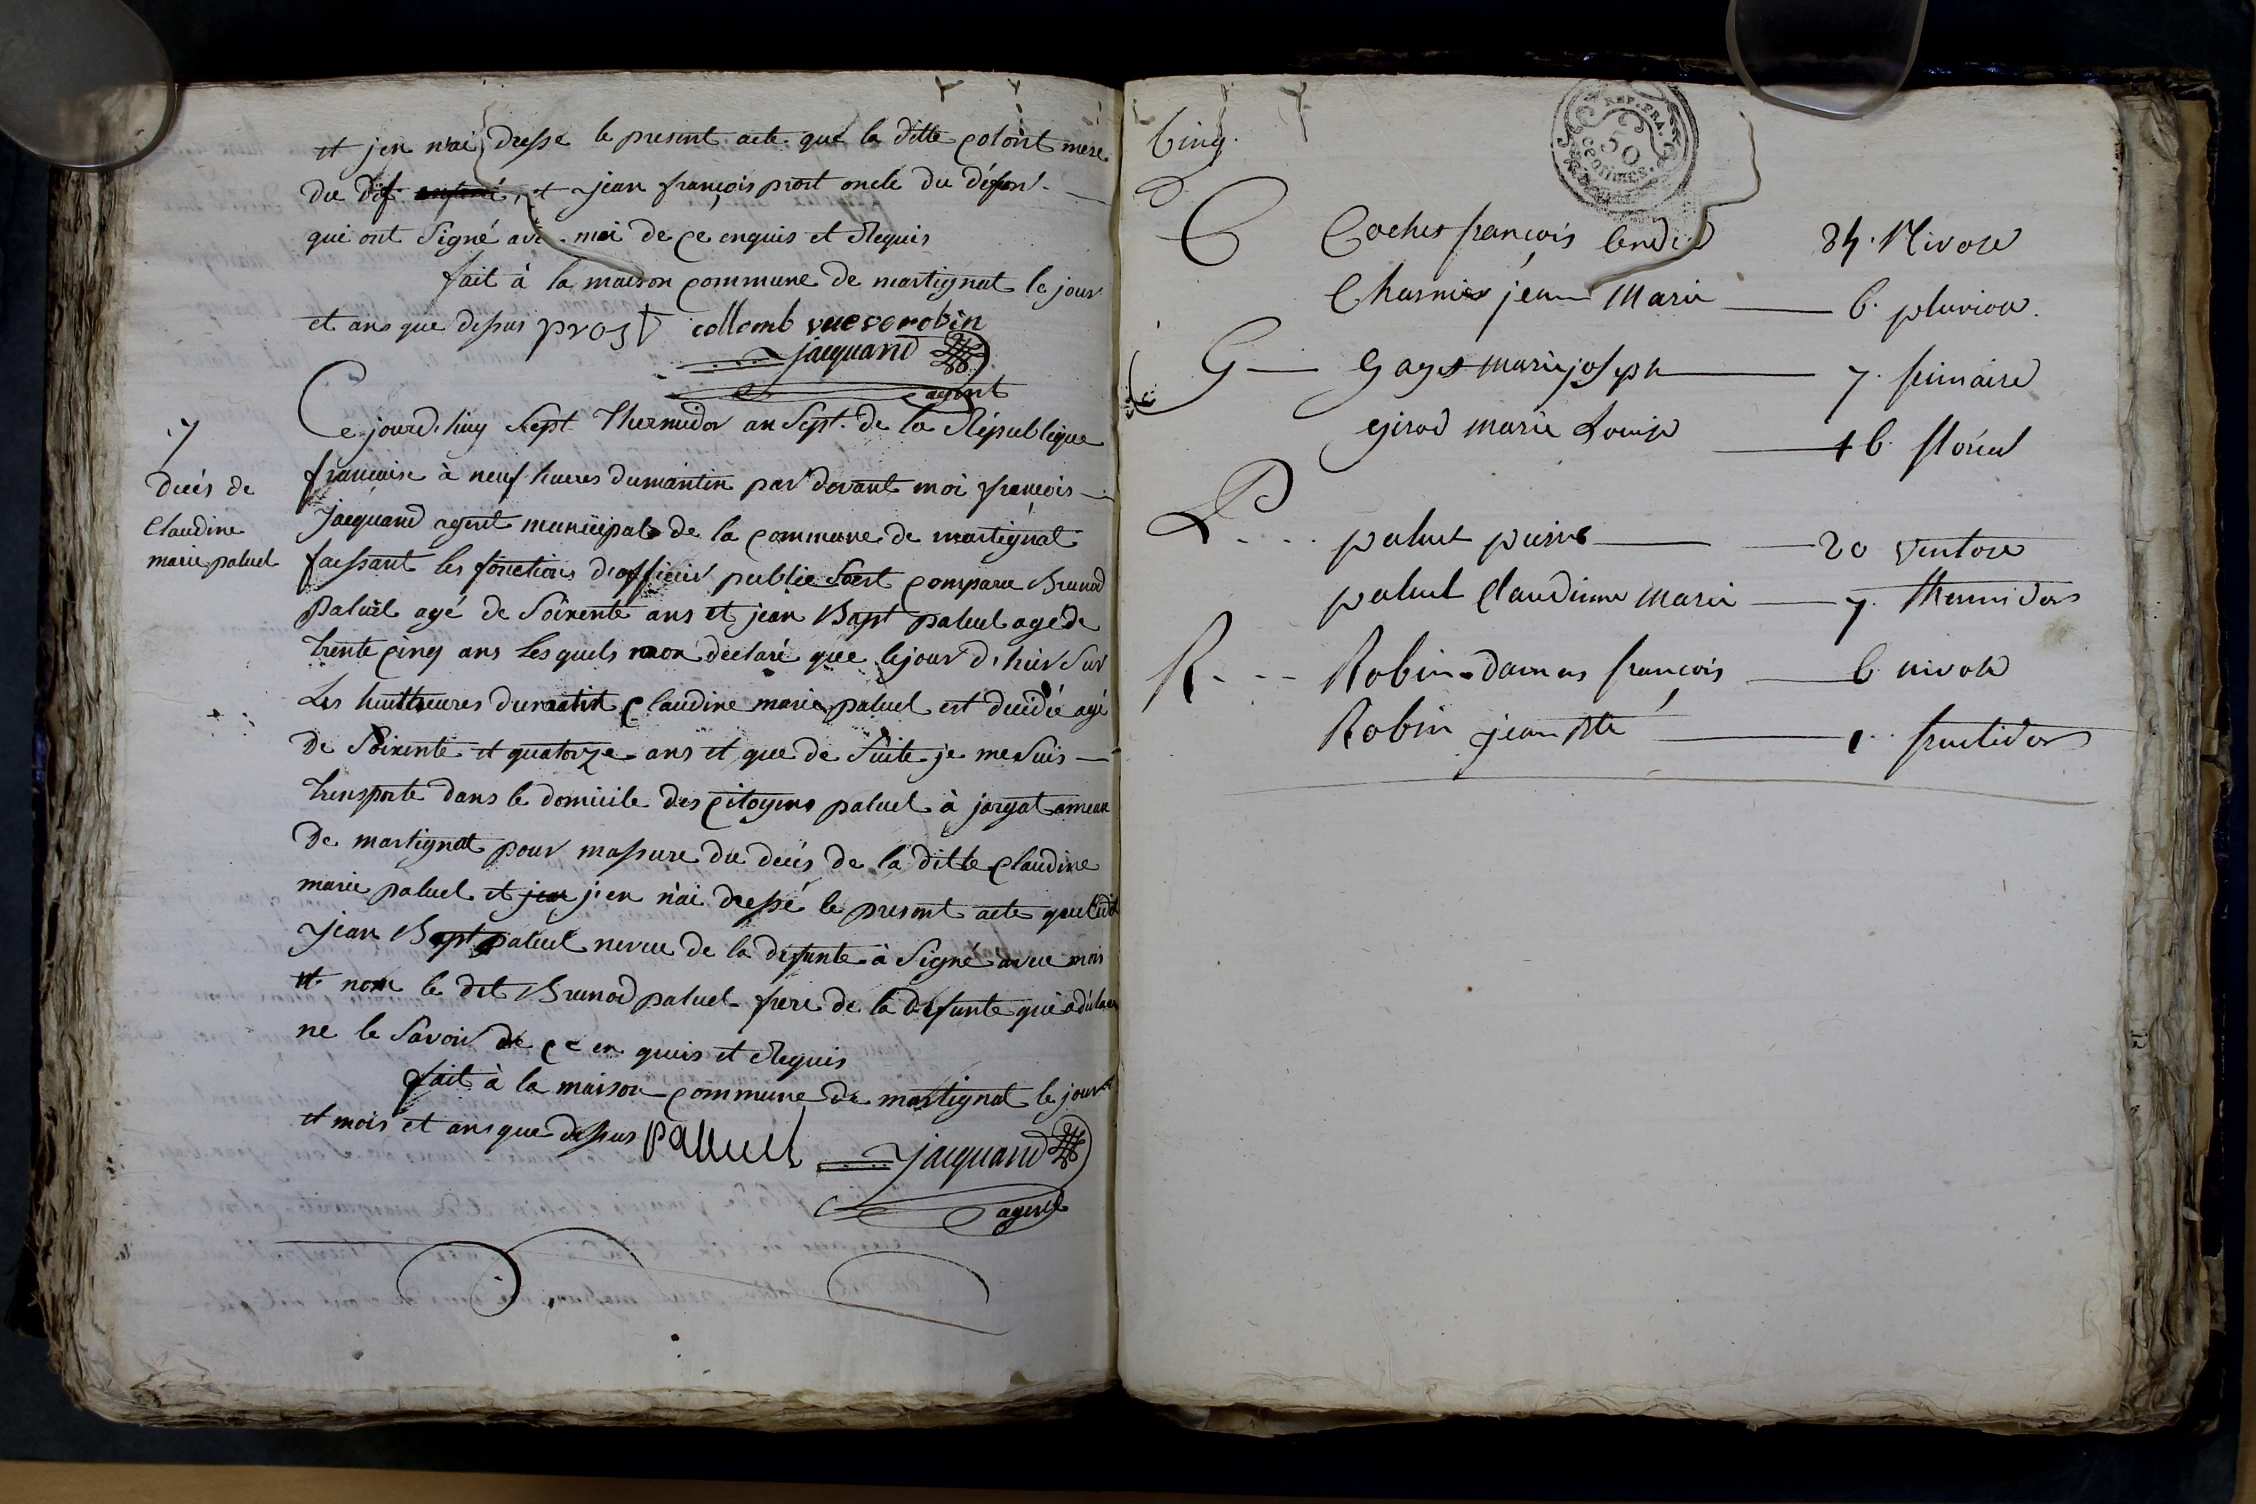 et jen n'ai dressé le present acte que la ditte colont mere
du déf et jean françois prost oncle du défunt
qui ont signé avec moi de ce enquis et Requis
fait à la maison commune de martignat le jour
et ans que dessus prost collomb veuve robin
jacquand
agent
7
Ce jourd'huy sept Thermidor an sept de la République
française à neuf hueres dumantin par devant moi françois
decès de
Claudine
marie paluel
jacquand agent municipal de la commune de martignat
faissant les fonctions d'officier public sont comparu Brunod
Paluel agé de soixente ans et jean Bapt paluel agé de
trente cinq ans lesquels mon déclaré que le jour d'hier sur
Les huit heures dumatin claudine marie paluel est decidié agé
de soixente et quatorze ans et que de suite je me suis
transporté dans le domicile des citoyens paluel à jargat ameau
de martignat pour massure du decès de la ditte claudine
marie paluel et jen j'en n'ai dressé le present acte que ledit
jean Bapt paluel neveu de la defunte à signé avec moi
et non le dit Brunod paluel frere de la defunte qui a déclaré
ne le savoir de ce en quuis et Requis
fait à la maison commune de martignat le jour
et mois et ans que dessus Palluel jacquand
agent
Cinq.
REP. FRA.
50
CENTIMES
C Cochet françois 24. Nivose
jean Marie 6. pluviose
G Gayet marie joseph 7. frimaire
girod marie Louise 16. floréal
P paluel 20 ventose
paluel Claudinne Marie 7. thermidor
R Robin damas françois 6 nivose
Robin jean Bte 1. fructidor